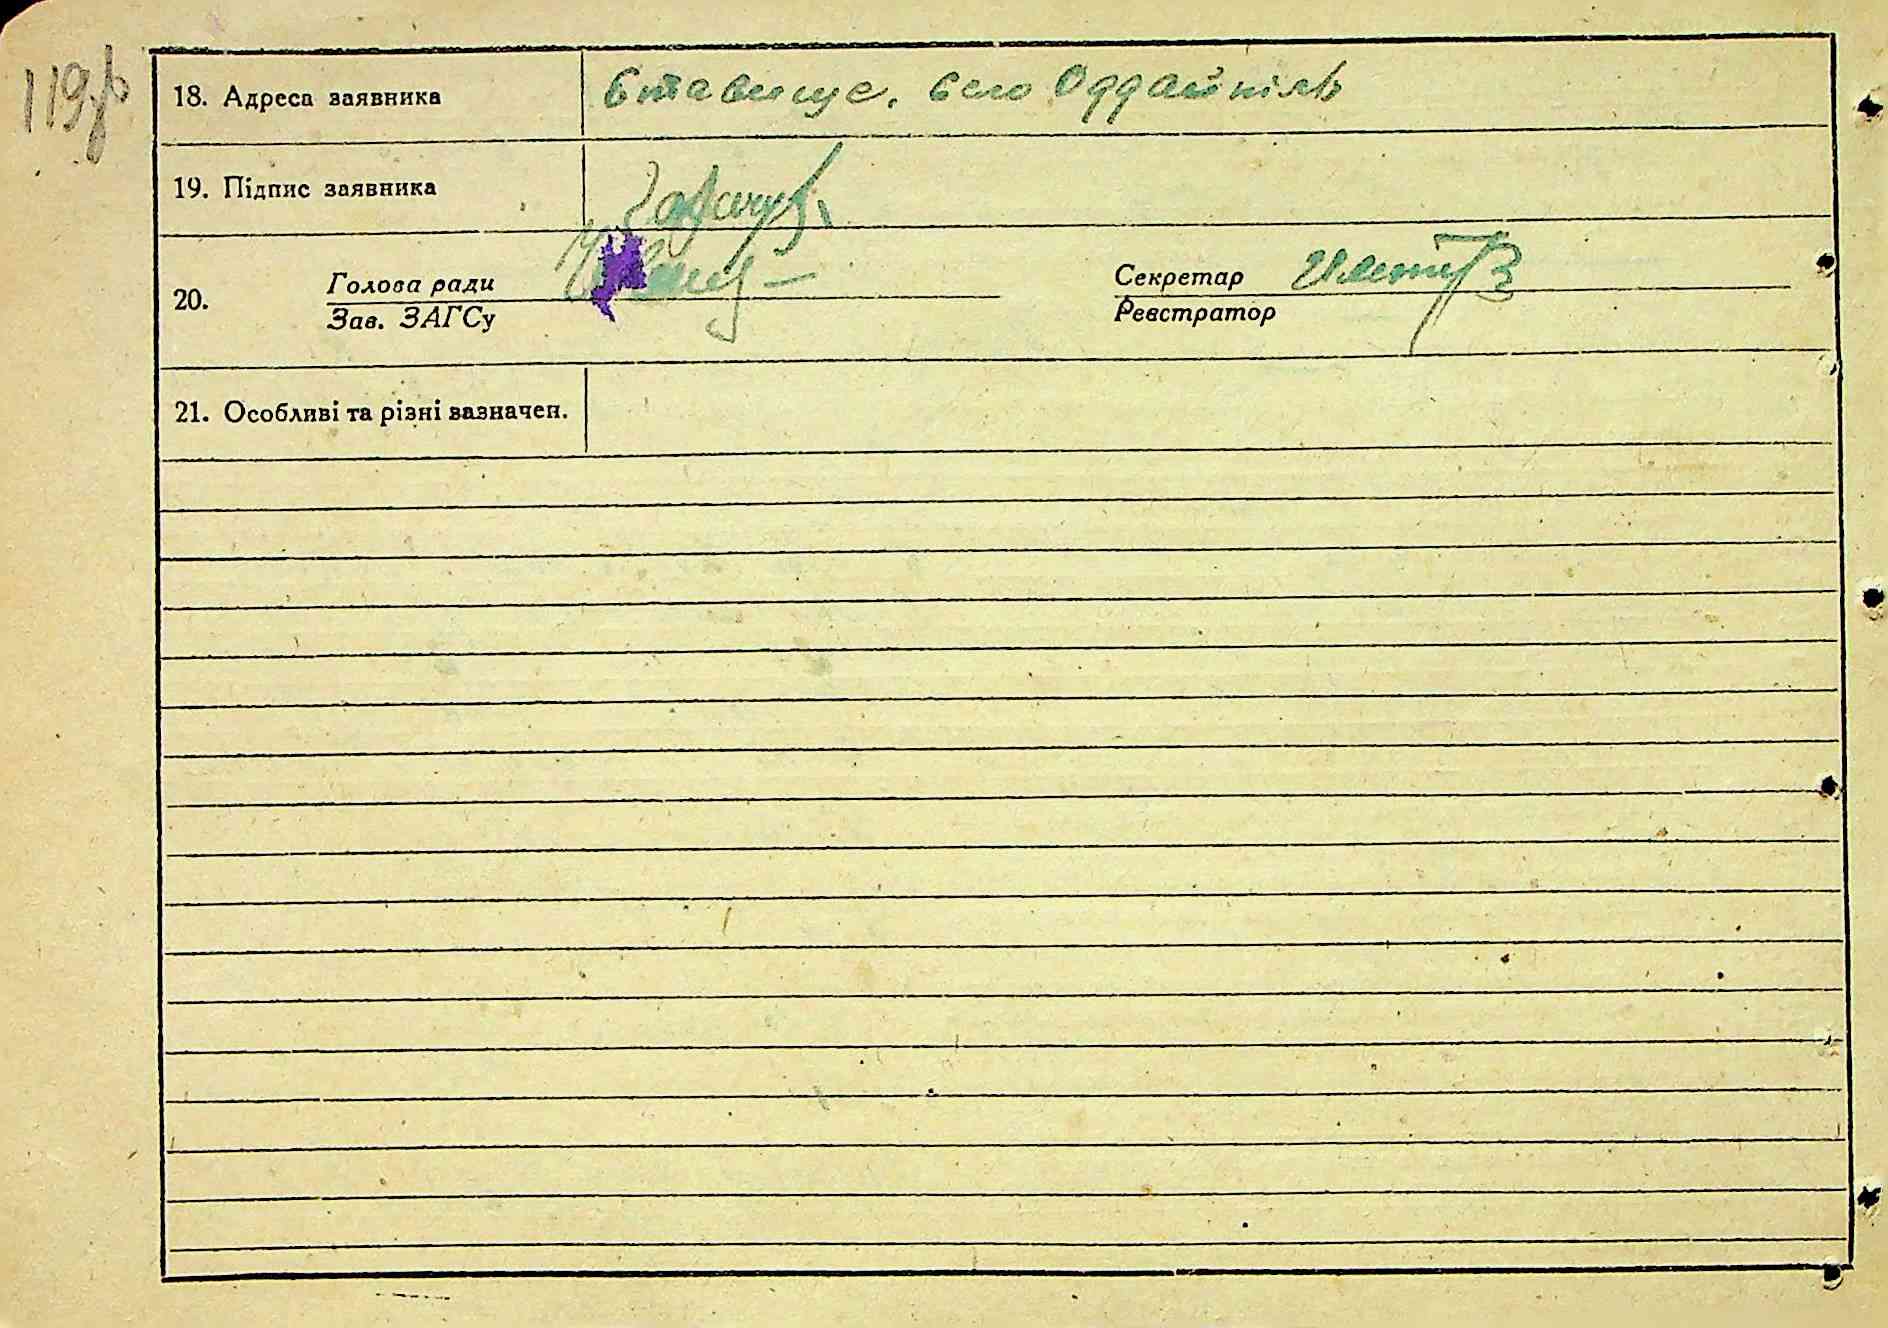 119
18. Адреса заявника Ставище, село Оддайпіль
19. Підпис заявника
20. Голова ради Секретар
Зав. ЗАГСу Реєстратор
21. Особливі та різні зазначен.